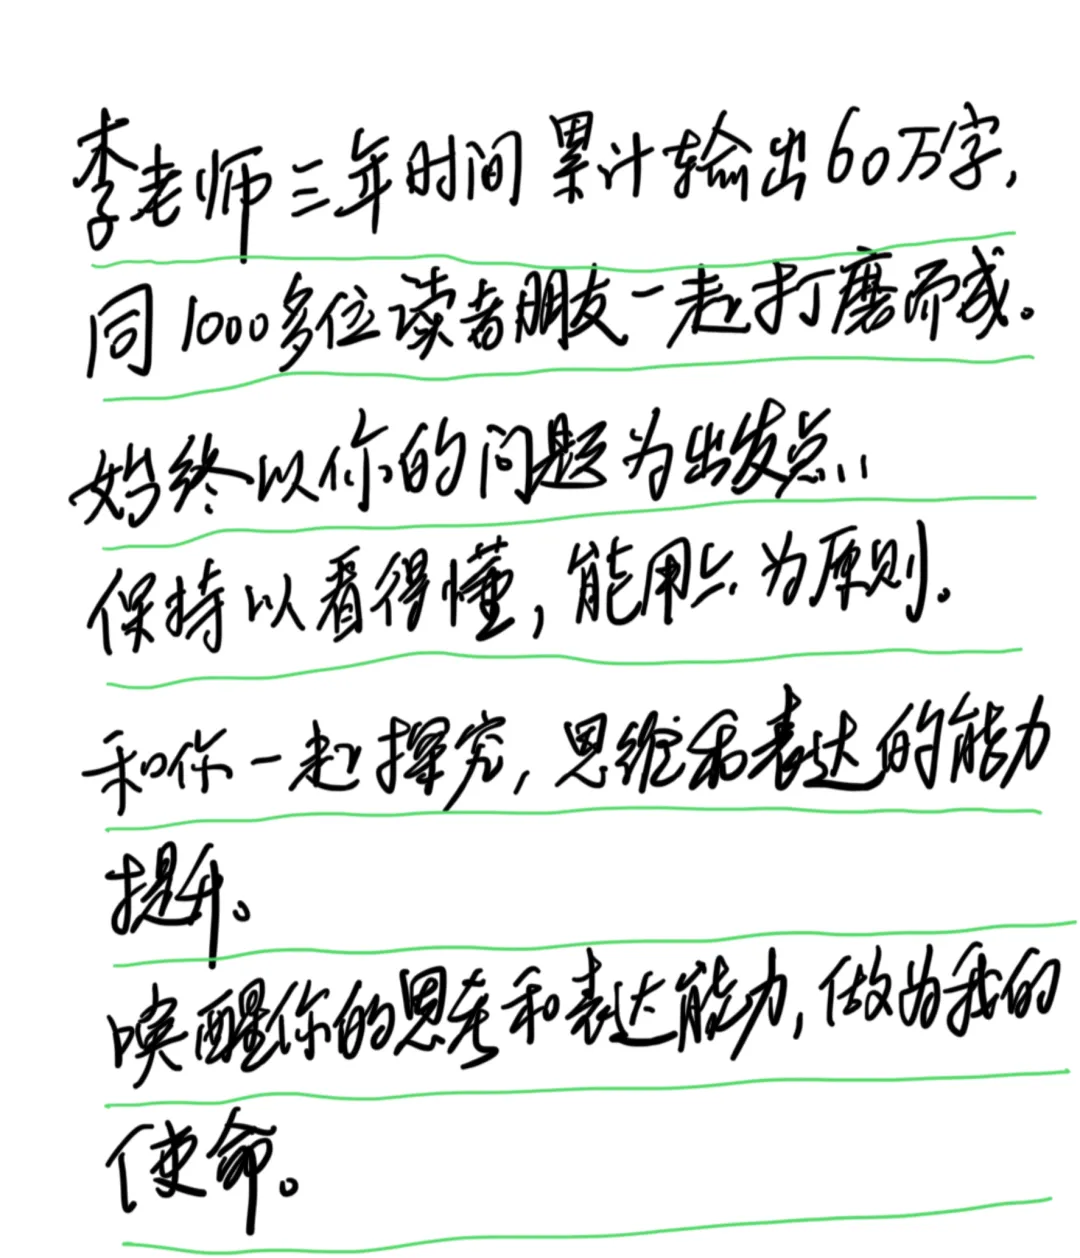 李老师三年时间累计输出60万字,
同1000多位读者朋友一起打磨而成。
始终以你的问题为出发点,
保持以看得懂,能用上为原则。
和你一起探究,思维和表达的能力
提升。
唤醒你的思考和表达能力,做为我的
使命。